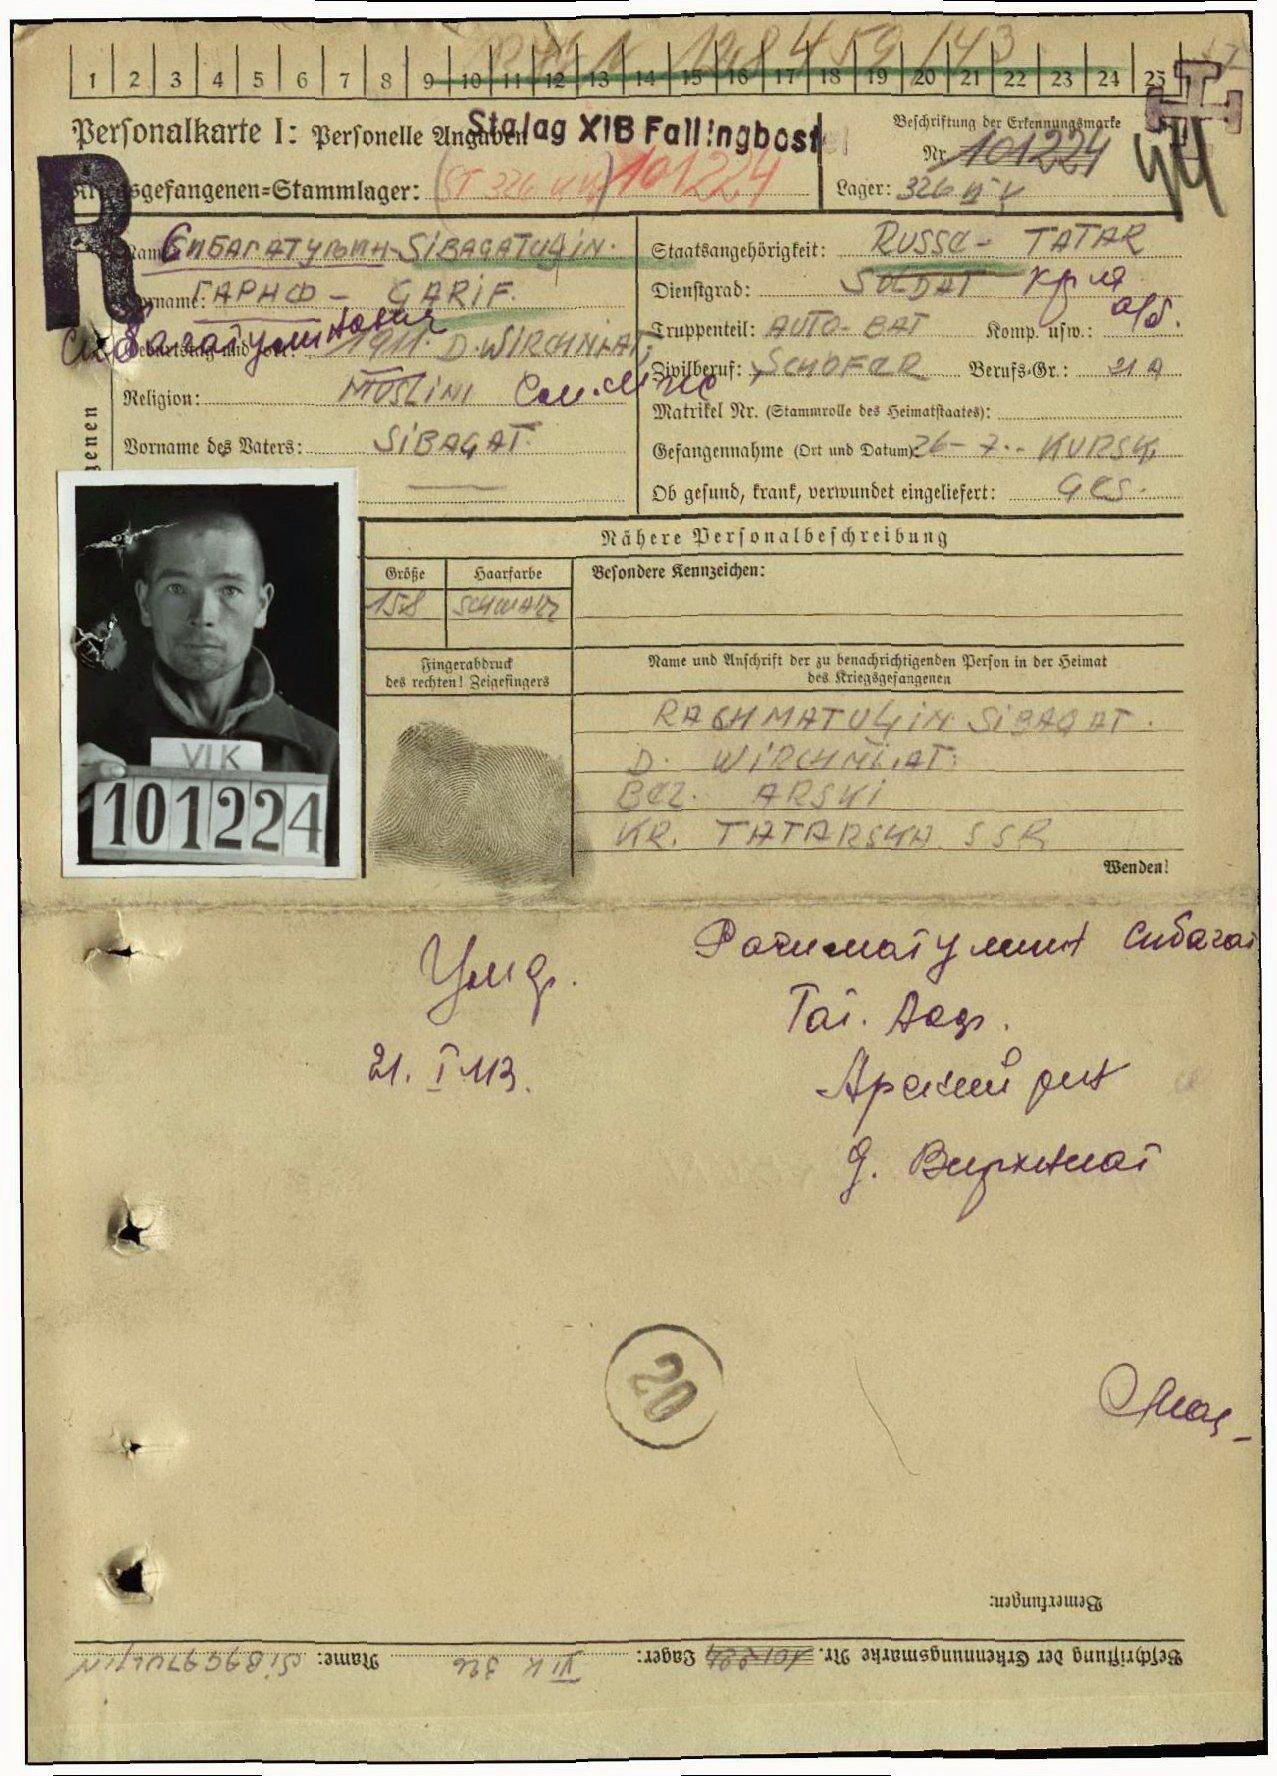 1 2 3 4 5 6 7 8 9 10 11 12 13 14 15 16 17 18 19 20 21 22 23 24 25
Personalkarte I: Personelle Angaben
Stalag XIB Fallingbostel
Beschriftung der Erkennungsmarke
Nr. 101224
Kriegsgefangenen=Stammlager: 101224
Lager: 326
R
Name: Сибагатулин - SIBAGATULIN.
Vorname: ГАРИФ - GARIF.
1911. D. WIRCHNI.AT
Religion: MUSLIM
Vorname des Vaters: SIBAGAT.
Staatsangehörigkeit: RUSSE - TATAR
Dienstgrad: SOLDAT
Truppenteil: AUTO-BAT Komp. usw.:
Zivilberuf: SCHOFER Berufs-Gr.: 21 A
Matrikel Nr. (Stammrolle des Heimatstaates):
Gefangennahme (Ort und Datum): 26-7.- KURSK
Ob gesund, krank, verwundet eingeliefert: GES.
Nähere Personalbeschreibung
Größe Haarfarbe Besondere Kennzeichen:
158 SCHWARZ
Fingerabdruck
des rechten! Zeigefingers
Name und Anschrift der zu benachrichtigenden Person in der Heimat
des Kriegsgefangenen
RACHMATULIN SIBAGAT.
D. WIRCHNI.AT.
BEZ. ARSKI
KR. TATARSKA SSR
Wenden!
VI K
101224
Рахматулин Сибагат
Тат.
Арский рн
д. Верхнеат
21. I
20
Bemerkungen:
Beschriftung der Erkennungsmarke Nr. 101224 Lager: VI K 326 Name: SIBAGATULIN